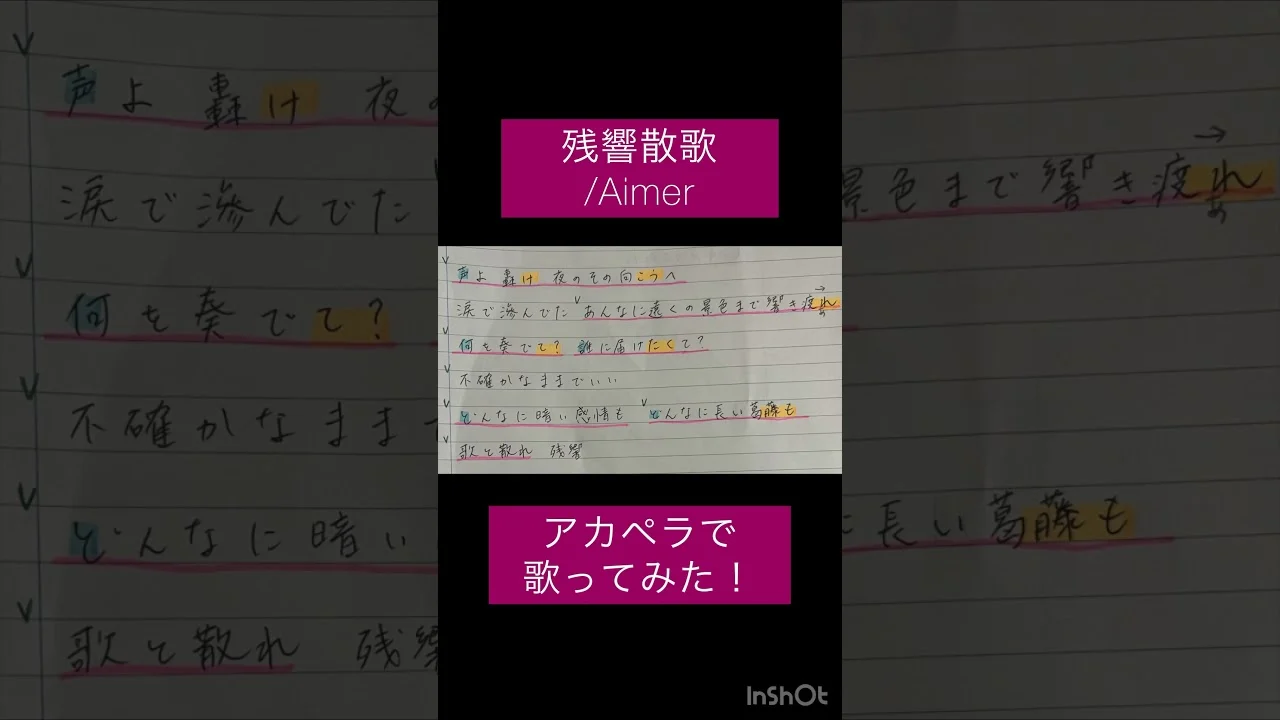 残響散歌
/Aimer
声よ 轟け 夜のその向こうへ
涙で滲んでた あんなに遠くの景色まで響き疲れ
あ
何を奏でて? 誰に届けたくて?
不確かなままでいい
どんなに暗い感情も どんなに長い葛藤も
歌と散れ 残響
アカペラで
歌ってみた!
InShOt